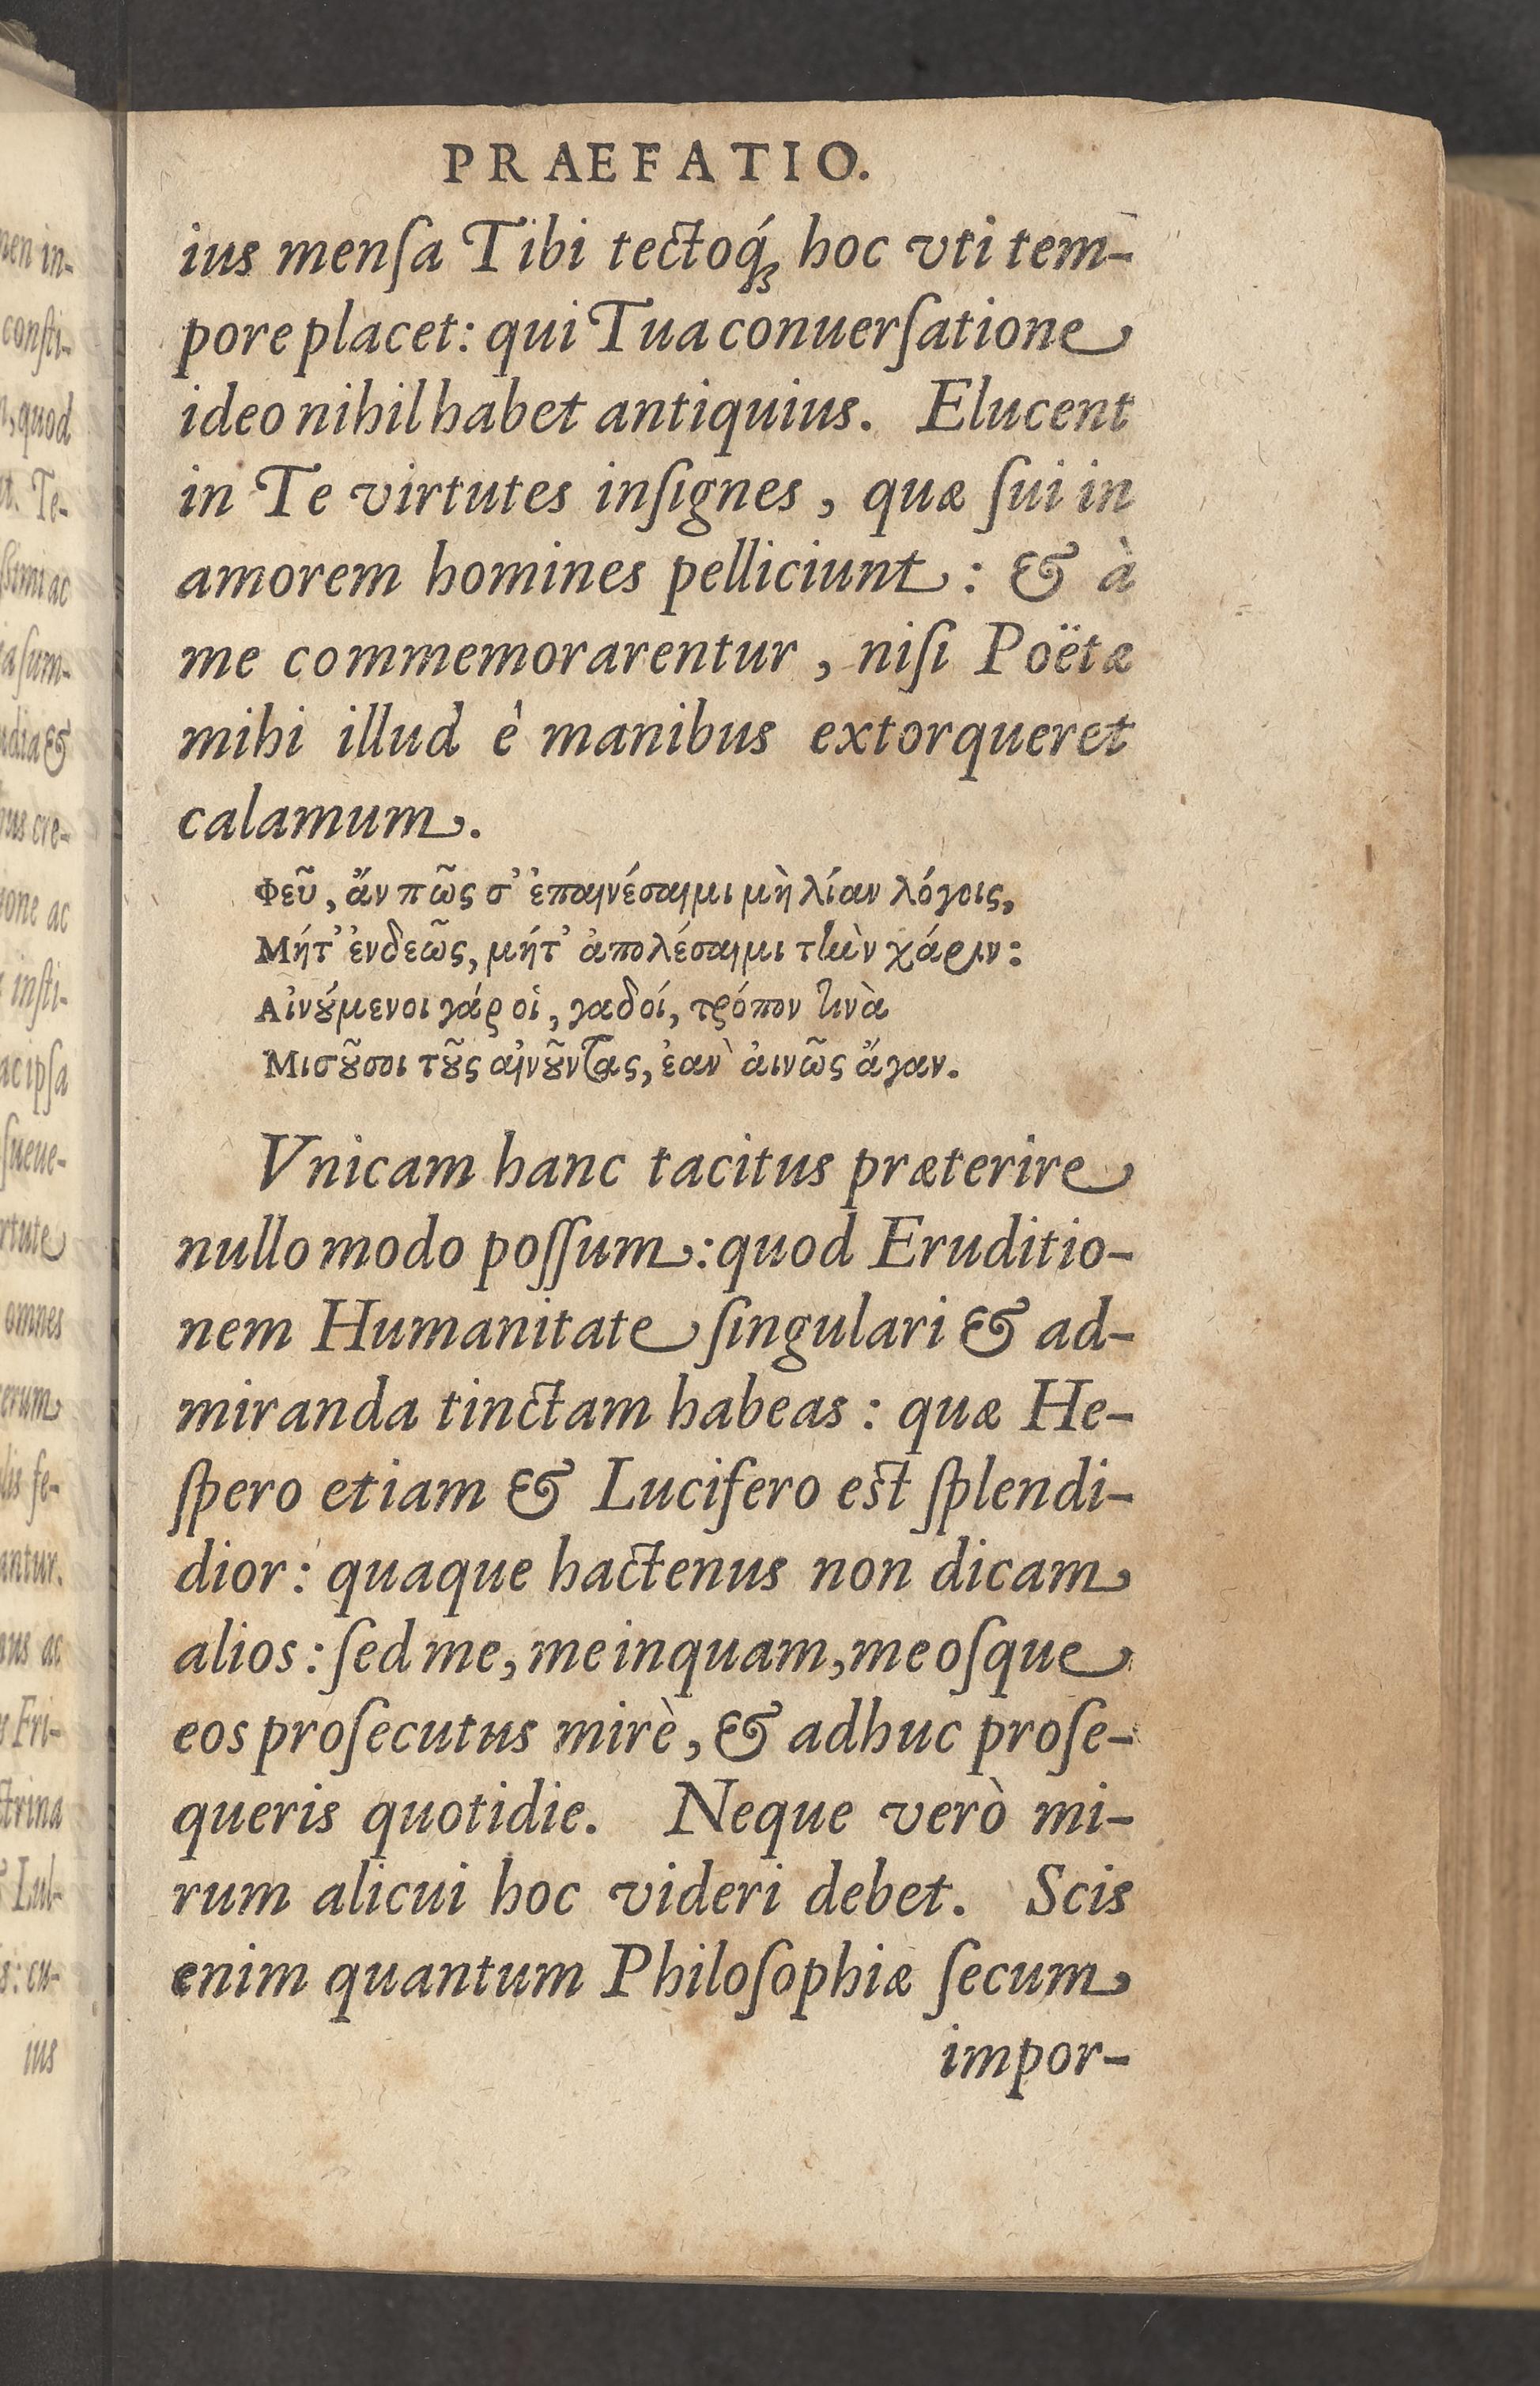 PRAEFATIO.
ius mensa Tibi tectoq́; hoc vti tem-
pore placet: qui Tua conuersatione
ideo nihil habet antiquius. Elucent
in Te virtutes insignes, quæ sui in
amorem homines pelliciunt: & à
me commemorarentur, nisi Poëtæ
mihi illud è manibus extorqueret
calamum.
Φεῦ, ἄν πῶς σ' ἐπαινέσαιμι μὴ λίαν λόγοις,
Μήτ' ἐνδεῶς, μήτ' ἀπολέσαιμι τὴν χάριν:
Αἰνούμενοι γάρ οἱ, γαδοί, τρόπον τινὰ
Μισοῦσι τοῦς αἰνοῦντας, ἐαν̀ ἀινῶς ἄγαν.
Vnicam hanc tacitus præterire
nullo modo possum: quod Eruditio-
nem Humanitate singulari & ad-
miranda tinctam habeas: quæ He-
spero etiam & Lucifero est splendi-
dior: quaque hactenus non dicam
alios: sed me, me inquam, meosque
eos prosecutus mirè, & adhuc prose-
queris quotidie. Neque verò mi-
rum alicui hoc videri debet. Scis
enim quantum Philosophiæ secum
impor-